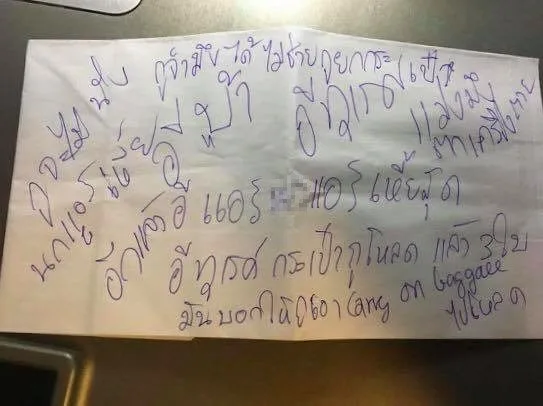 กูจำมึงได้ ไม่ช่วยกูยกกระเป๋า
กูจะไม่นั่ง
นกแอร์เหี้ย
อีบ้า อีทุเรศ
ตกเครื่องตาย
อีกแล้วอี แอร์ แอร์ เหี้ยสุด
อีทุเรศ กระเป๋ากูโหลด แล้ว 3 ใบ
มันบอกให้กูเอา carry on baggage ไปโหลด